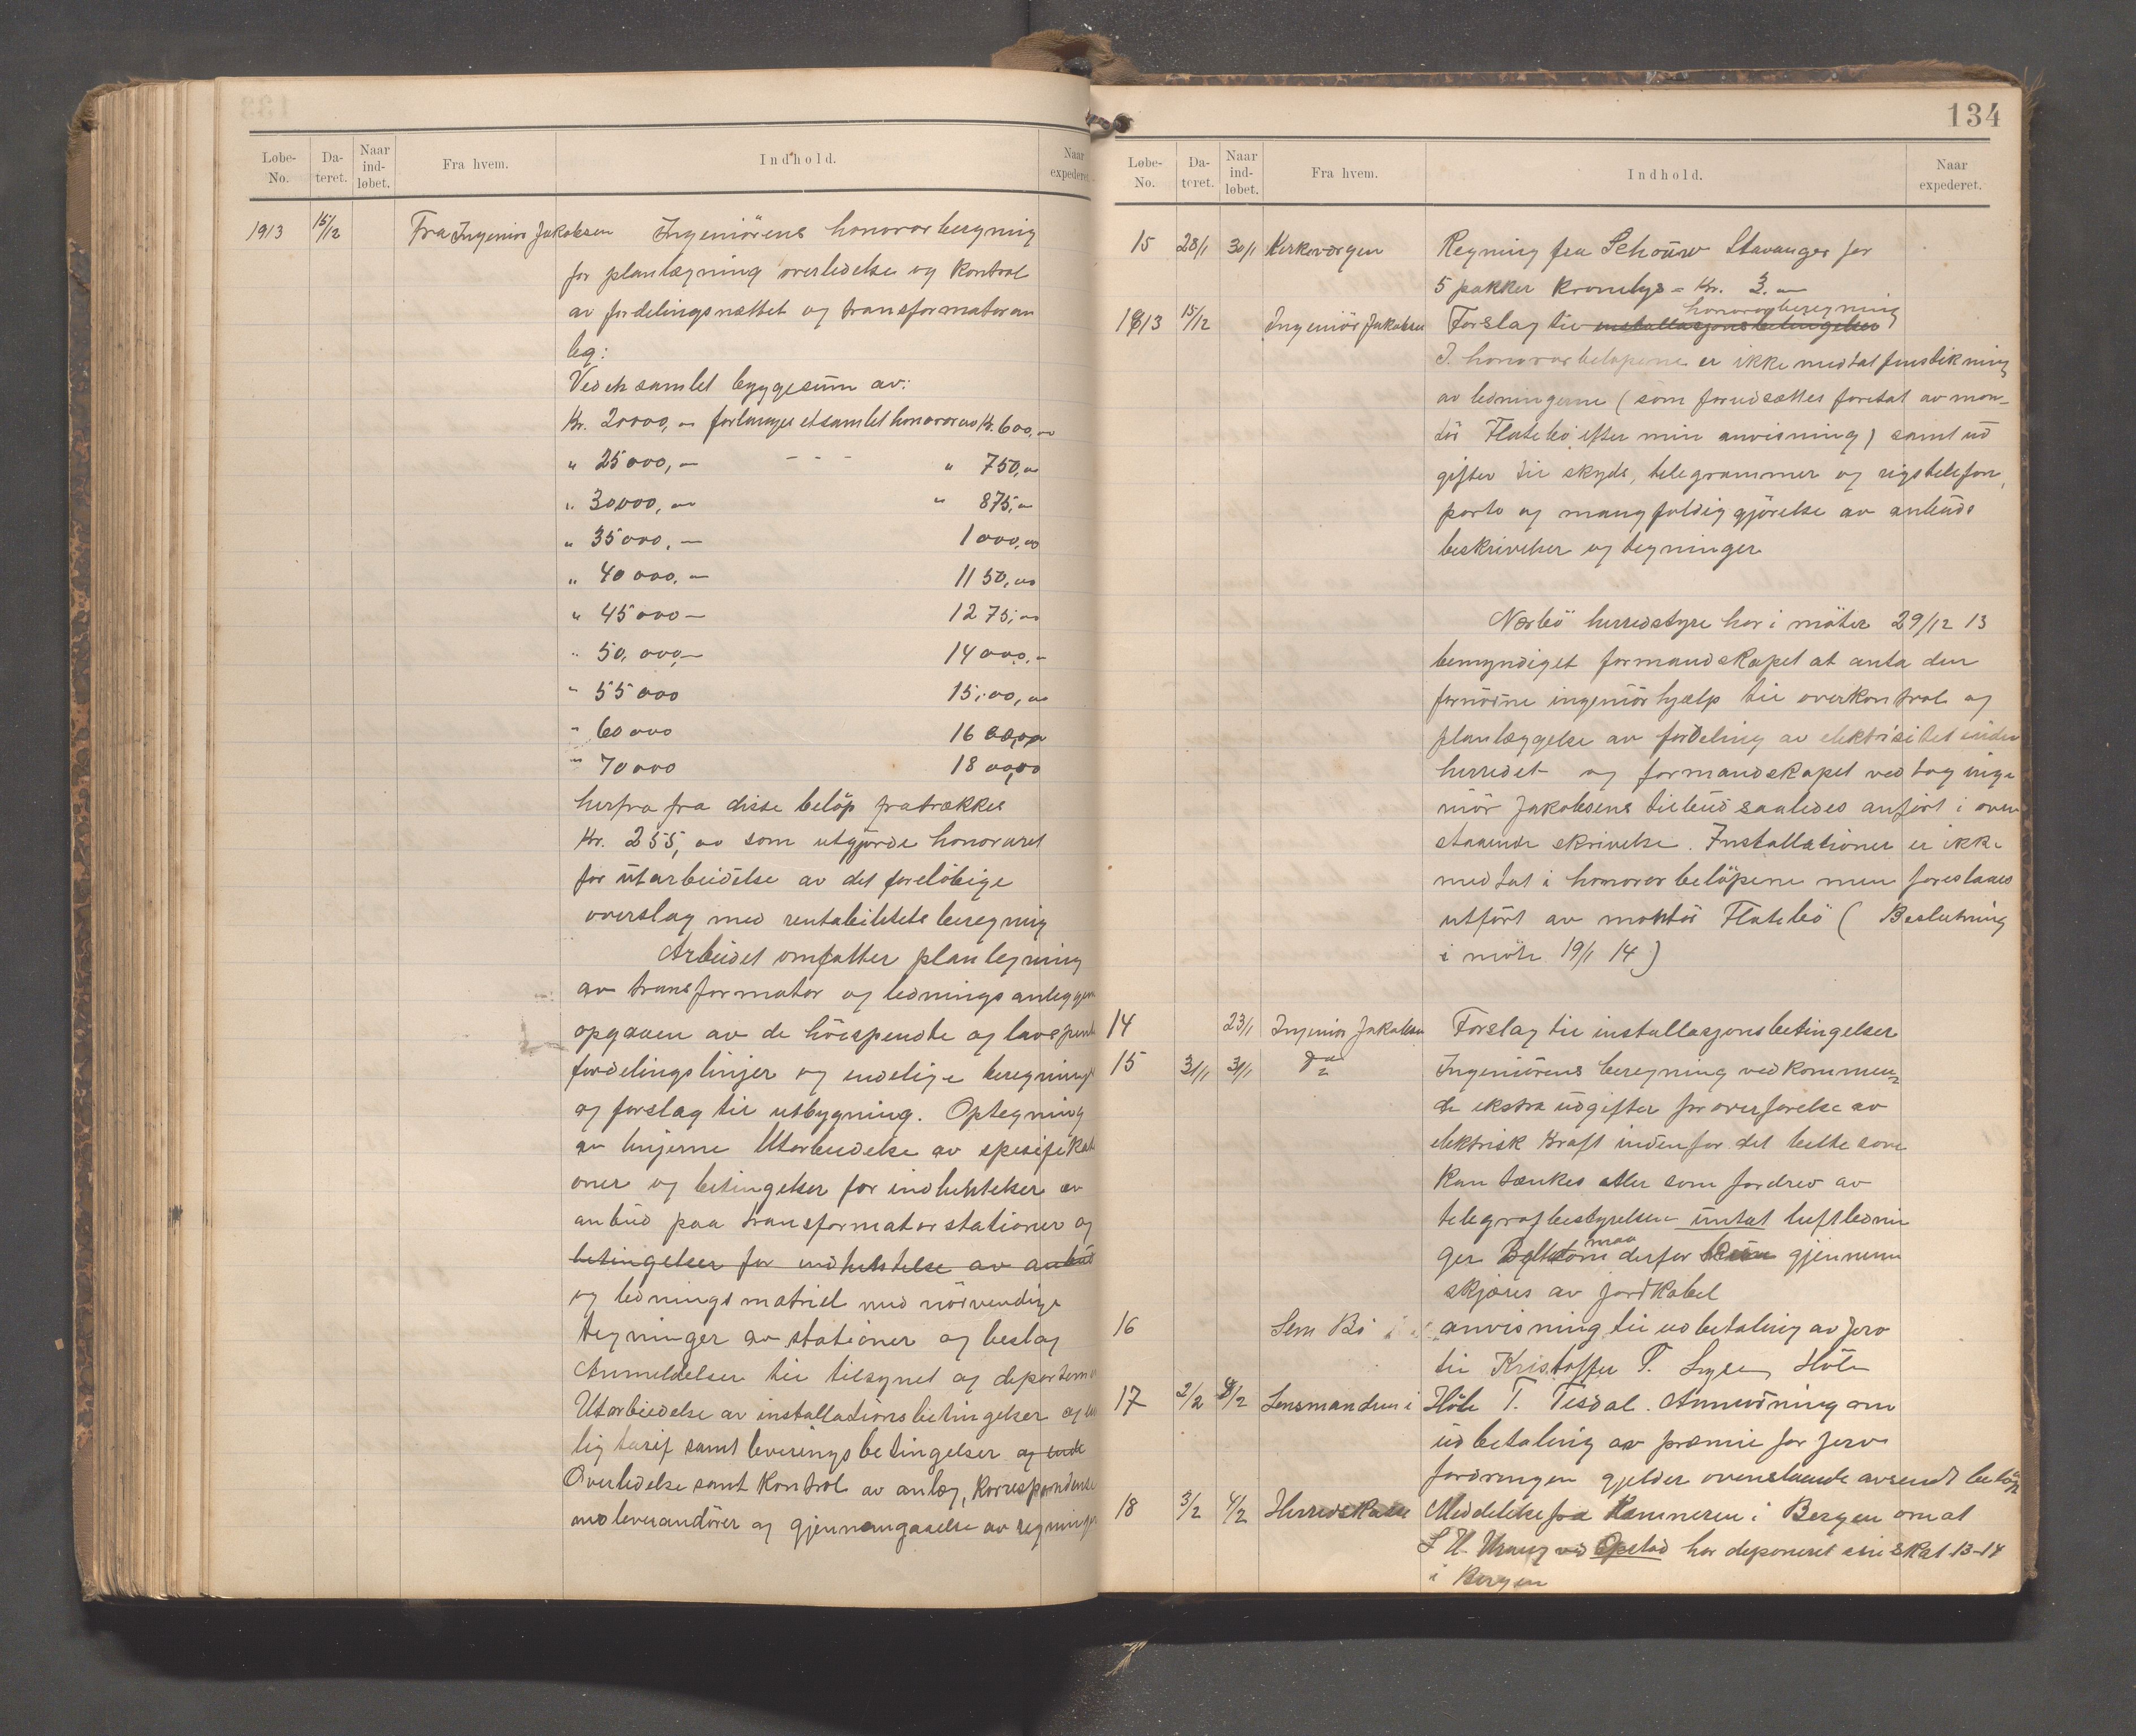 Løbe-No. Da-teret. Naar ind-løbet. Fra hvem. Indhold. Naar expederet.
1913 15/12 Fra Ingeniør Jakobsen Ingeniörens honorarberegning
for planlægning overledelse og kontrol
av fordelingsnættet og transformatoran
læg:
Ved en samlet byggesum av:
Kr. 20000,- forlanges et samlet honorar av Kr. 600,-
" 25000,- - - - " 750,-
" 30000,- " 875,-
" 35000,- 1000,00
" 40000,- 1150,00
" 45000- 1275,00
" 50,000,- 14000,-
" 55000 15,00,00
" 60000 1600,00
" 70000 1800,00
herfra fra disse belöp fratrækkes
Kr. 255,00 som utgjorde honoraret
for utarbeidelse av det forelöbige
overslag med rentabilitets beregning
Arbeidet omfatter planlegning
av transformator og lednings anleggen
opgaven av de höispendte og lavspendte
fordelingslinjer og endelige beregning
og forslag til utbygning. Optegning
av linjerne Utarbeidelse av spesifikati
oner og betingelser for indhentelser av
anbud paa transformatorstationer og
betingelser for indhentelse av anbud
og ledningsmatriel med nödvendige
tegninger av stationer og beslag
Anmeldelser til tilsynet og departem
Utarbeidelse av installationsbetingelser og
lig tarif samt leveringsbetingelser og ende
Overledelse samt Kontrol av anlæg, Korrespondense
med leverandörer og gjennemgaaelse av regninger
134
Løbe-No. Da-teret. Naar ind-løbet. Fra hvem. Indhold. Naar expederet.
15 28/1 30/1 Kirkevergen Regning fra Schouw Stavanger for
5 pakker kronelys = Kr. 3.-
honorarberegning
1913 15/12 Ingeniör Jakobsen Forslag til installasjonsbetingelser
I honorarbelopene er ikke medtat finstikning
av ledningerne (som forudsættes foretat av mon-
tör Flatebö efter min anvisning) samt ud
gifter til skyds, telegrammer og rigstelefon,
porto og mangfoldiggjörelse av anbuds
beskrivelser og tegninger
Nærbö herredstyre har i möter 29/12 13
bemyndiget formandskapet at anta den
fornödne ingeniörhjælp til overkontrol og
planlæggelse av fordeling av elektrisitet inden
herredet og formandskapet vedtog inge
niör Jakobsens tilbud saaledes anfört i oven
staaende skrivelse. Installationer er ikke
medtat i honorarbelöpene men foreslaaes
utfört av montör Flatebö ( Beslutning
i möte 19/1 14)
14 23/1 Ingeniør Jakobsen Forslag til installasjonsbetingelser
15 31/1 31/1 do Ingeniörens beregning vedkommen-
de ekstra udgifter for overförelse av
elektrisk kraft indenfor det belte som
kan tænkes eller som fordres av
telegrafbestyrelsen untat luftlednin
ger Beltet maa derfor kun gjennem
skjæres av jordkabel
16 anvisning til udbetaling av Jerv
til Kristoffer T. Lyse, Höle
17 2/2 3/2 Lensmanden i Höle T. Tisdal. Anmodning om
udbetaling av præmie for jerv
fordringen gjelder ovenstaaende avsendt belöp
18 3/2 4/2 Herredskasse Meddelelse fra Kemneren i Bergen om at
ved Opstad har deponeret sin skat 13-14
i Bergen